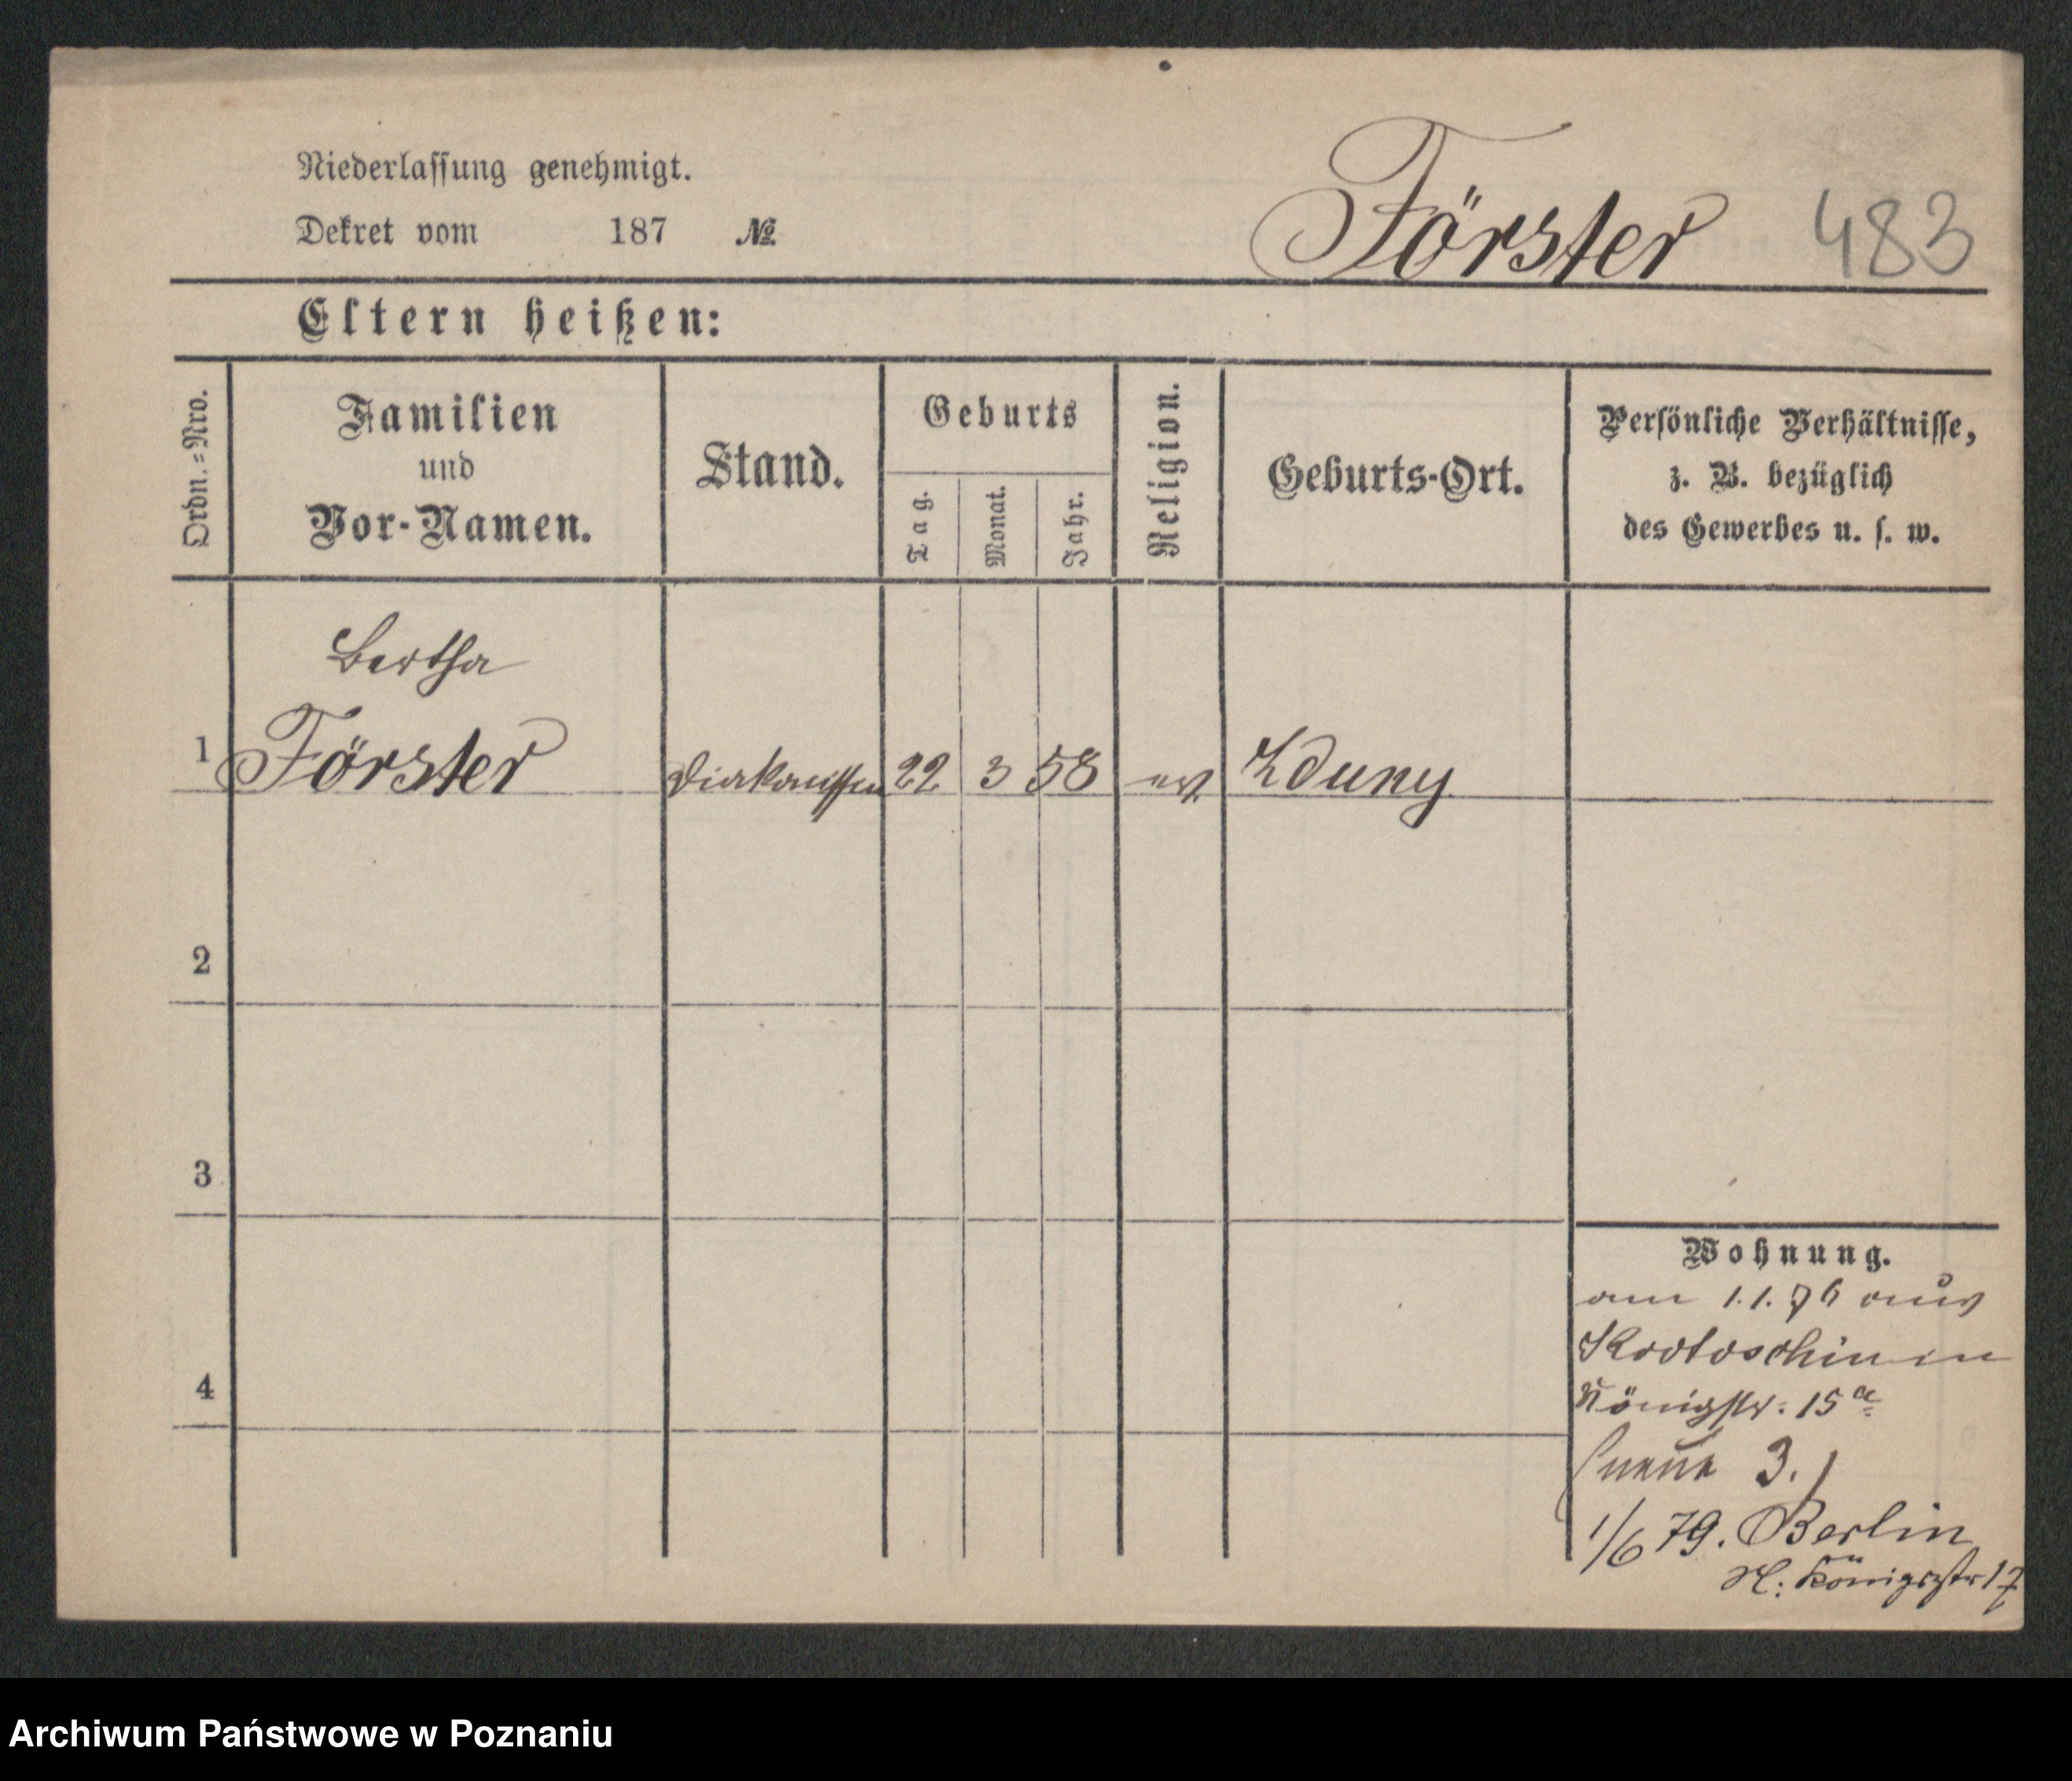 Niederlassung genehmigt.
Dekret vom 187 №
Förster 483
Eltern heißen:
Ordn.=Nro.
Familien
und
Vor-Namen.
Stand.
Geburts
Tag.
Monat.
Jahr.
Religion.
Geburts-Ort.
Persönliche Verhältnisse,
z. B. bezüglich
des Gewerbes u. s. w.
Bertha
1 Förster Diakonissin 22 3 58 ev Zduny
2
3
4
Wohnung.
am 1.1.76 aus
Krotoschin in
Königstr. 15a
3.
1/6 79. Berlin
Königsstr 17
Archiwum Państwowe w Poznaniu